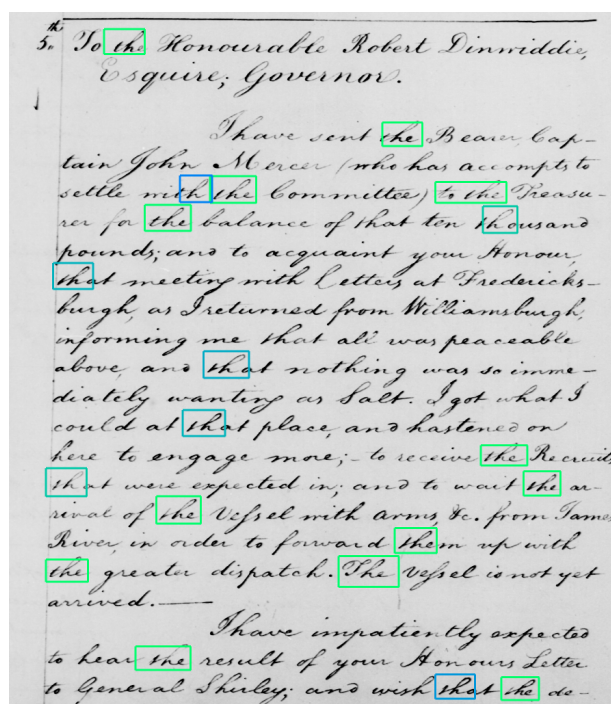 5.th To the Honourable Robert Dinwiddie,
Esquire; Governor.
I have sent the Bearer, Cap-
tain John Mercer (who has accompts to
settle with the Committee) to the Treasu-
rer for the balance of that ten thousand
pounds; and to acquaint your Honour,
that meeting with Letters at Fredericks-
burgh, as I returned from Williamsburgh,
informing me that all was peaceable
above, and that nothing was so imme-
diately wanting as Salt. I got what I
could at that place, and hastened on
here to engage more;- to receive the Recruits
that were expected in; and to wait the ar-
rival of the Vessel with arms, &c. from James
River, in order to forward them up with
the greater dispatch. The Vessel is not yet
arrived.—
I have impatiently expected
to hear the result of your Honours Letter
to General Shirley; and wish that the de-